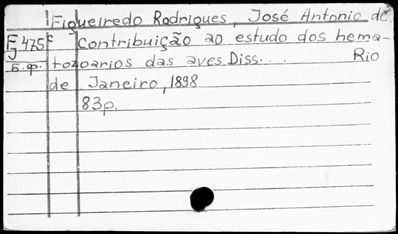 Figueiredo Rodrigues, José Antonio de
F 475c Contribuição ao estudo dos hema-
tozoarios das aves Diss... Rio
de Janeiro, 1898
83p.